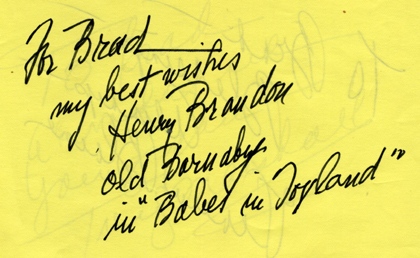 For Brad
my best wishes
Henry Brandon
old Barnaby
in "Babes in Toyland"